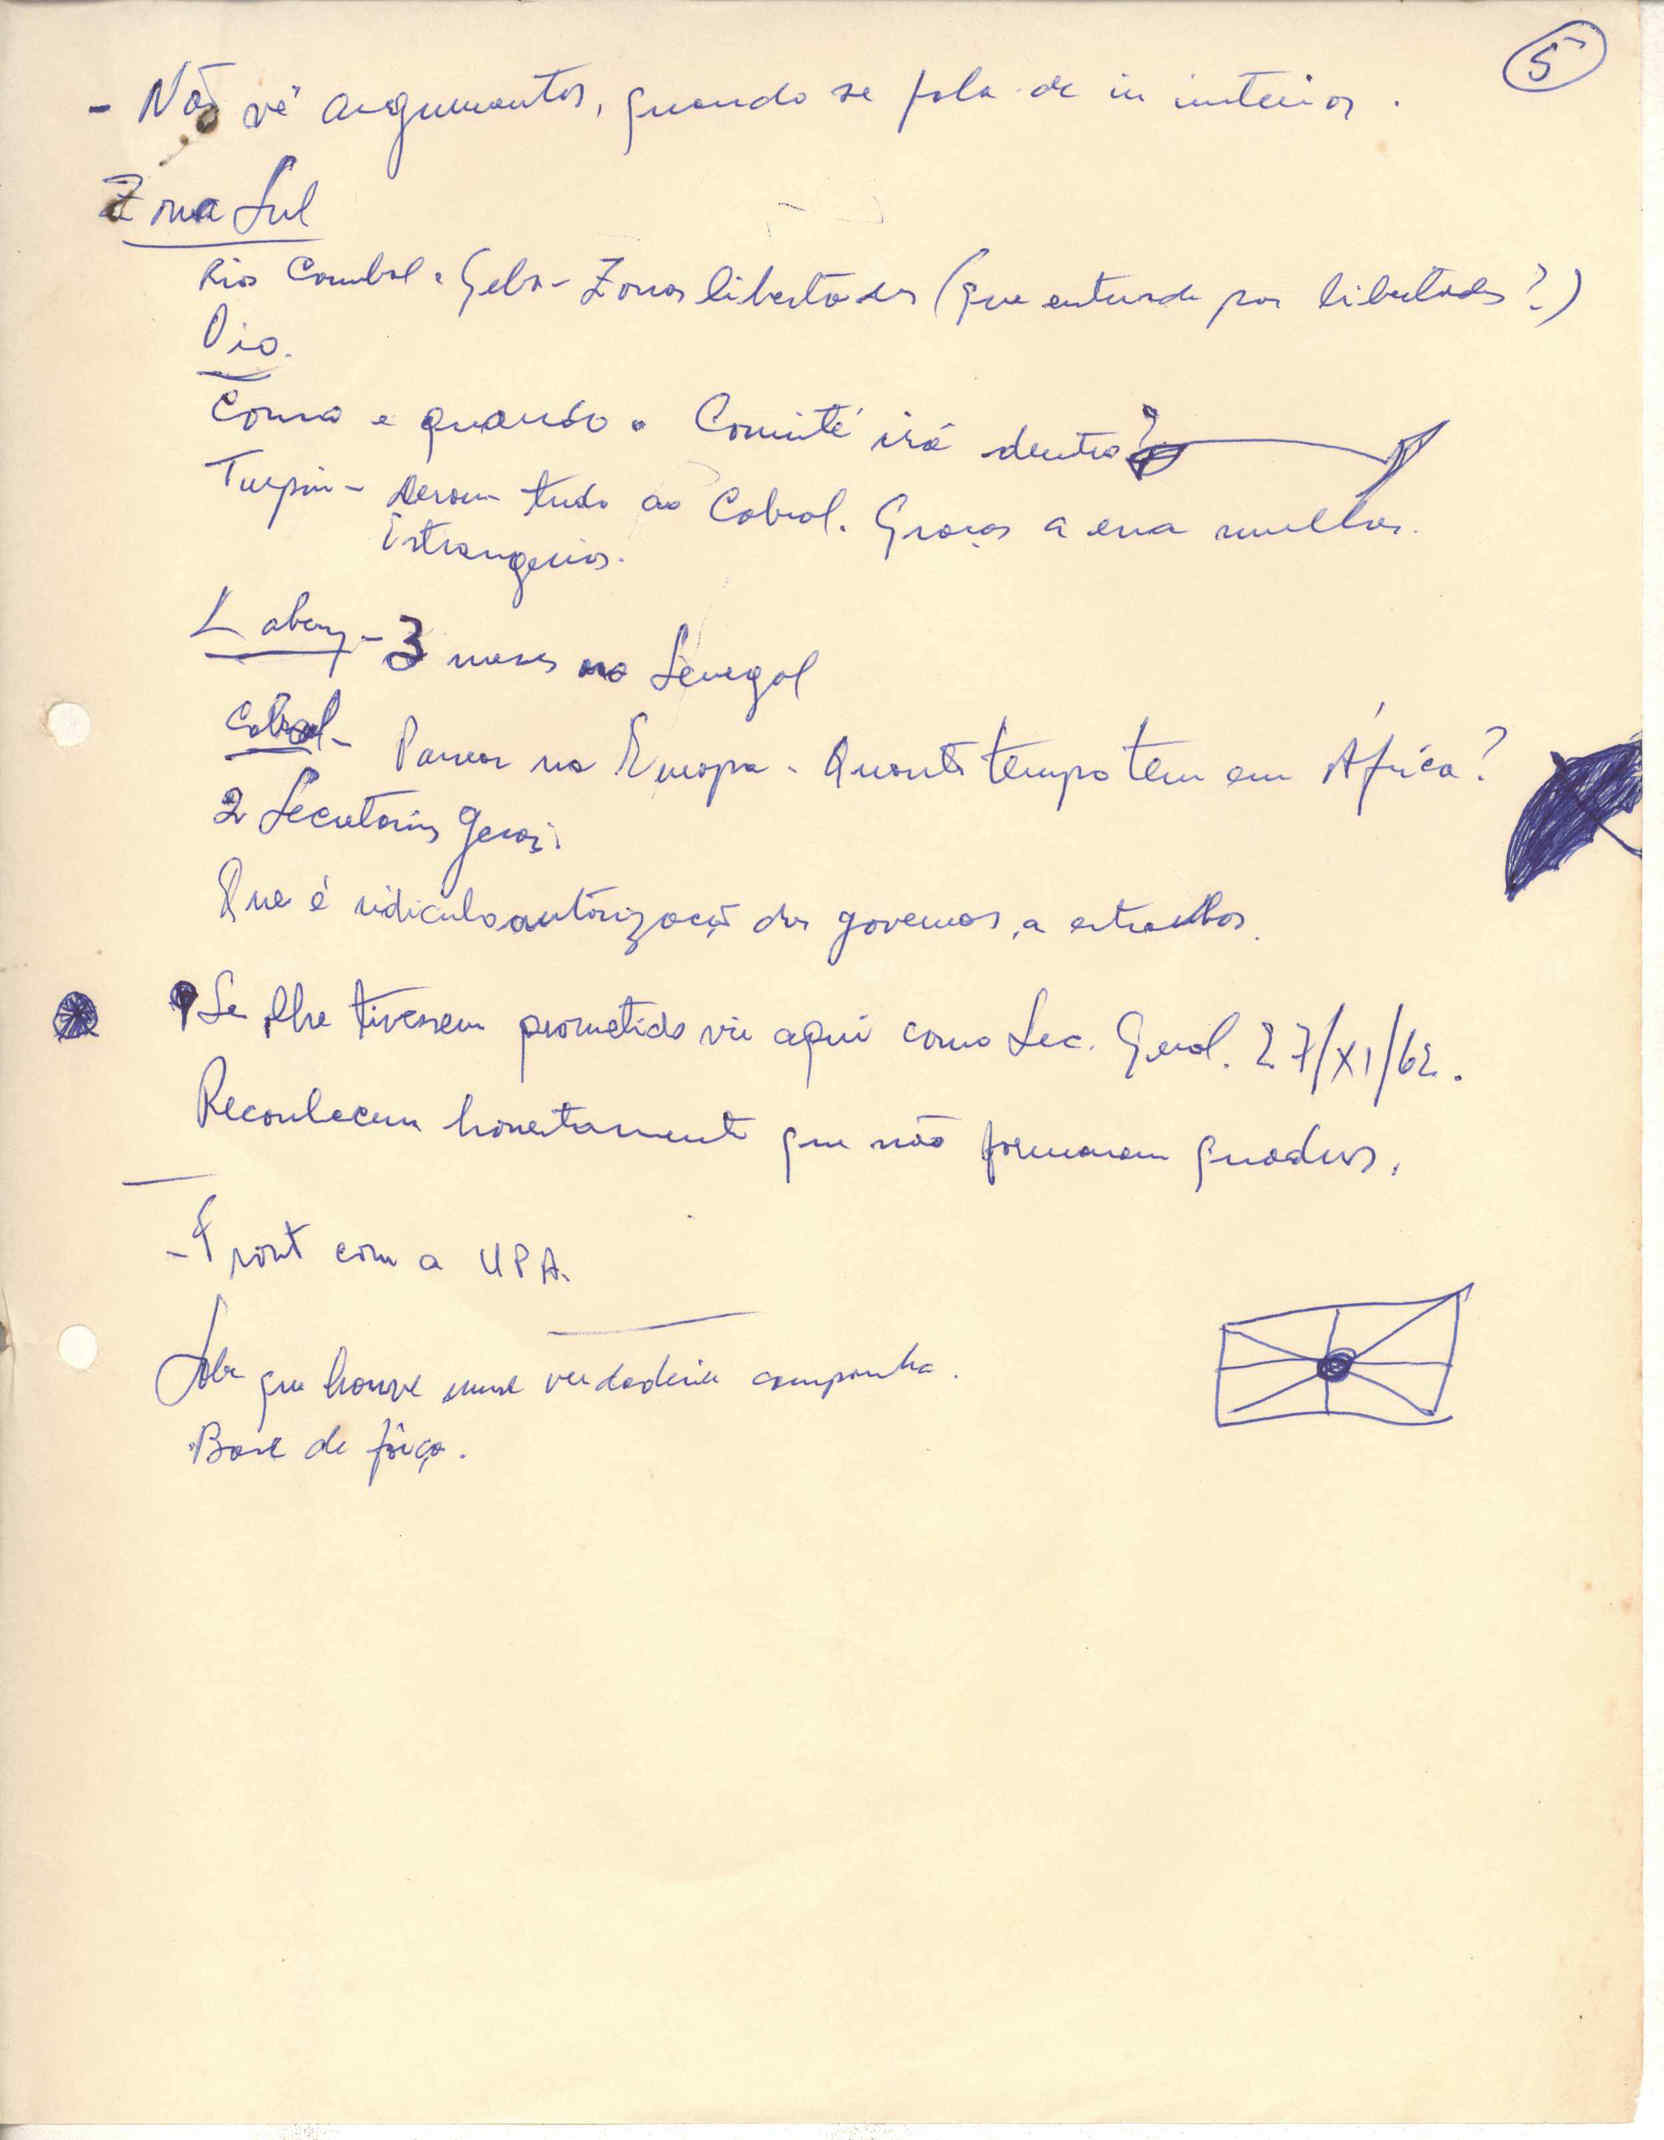 5
- Não vê argumentos, quando se fala de in interior.
Zona Sul
Rios Combal e Geba - Zonas libertadas (que entende por libertadas?)
Oio.
Como e quando o Comité irá dentro?
Turpin - Deram tudo ao Cabral. Graças a
Estrangeiros.
Labery - 3 meses no Senegal
Cabral - na Europa. Quanto tempo tem em África?
2 Secretários Gerais.
Que é ridiculo autorização dos governos, a estranhos.
Se lhe tivessem prometido vir aqui como Sec. Geral. 27/XI/62.
Reconhecem honestamente que não formaram quadros.
- Front com a UPA.
Sabe que houve uma verdadeira campanha.
Base de força.